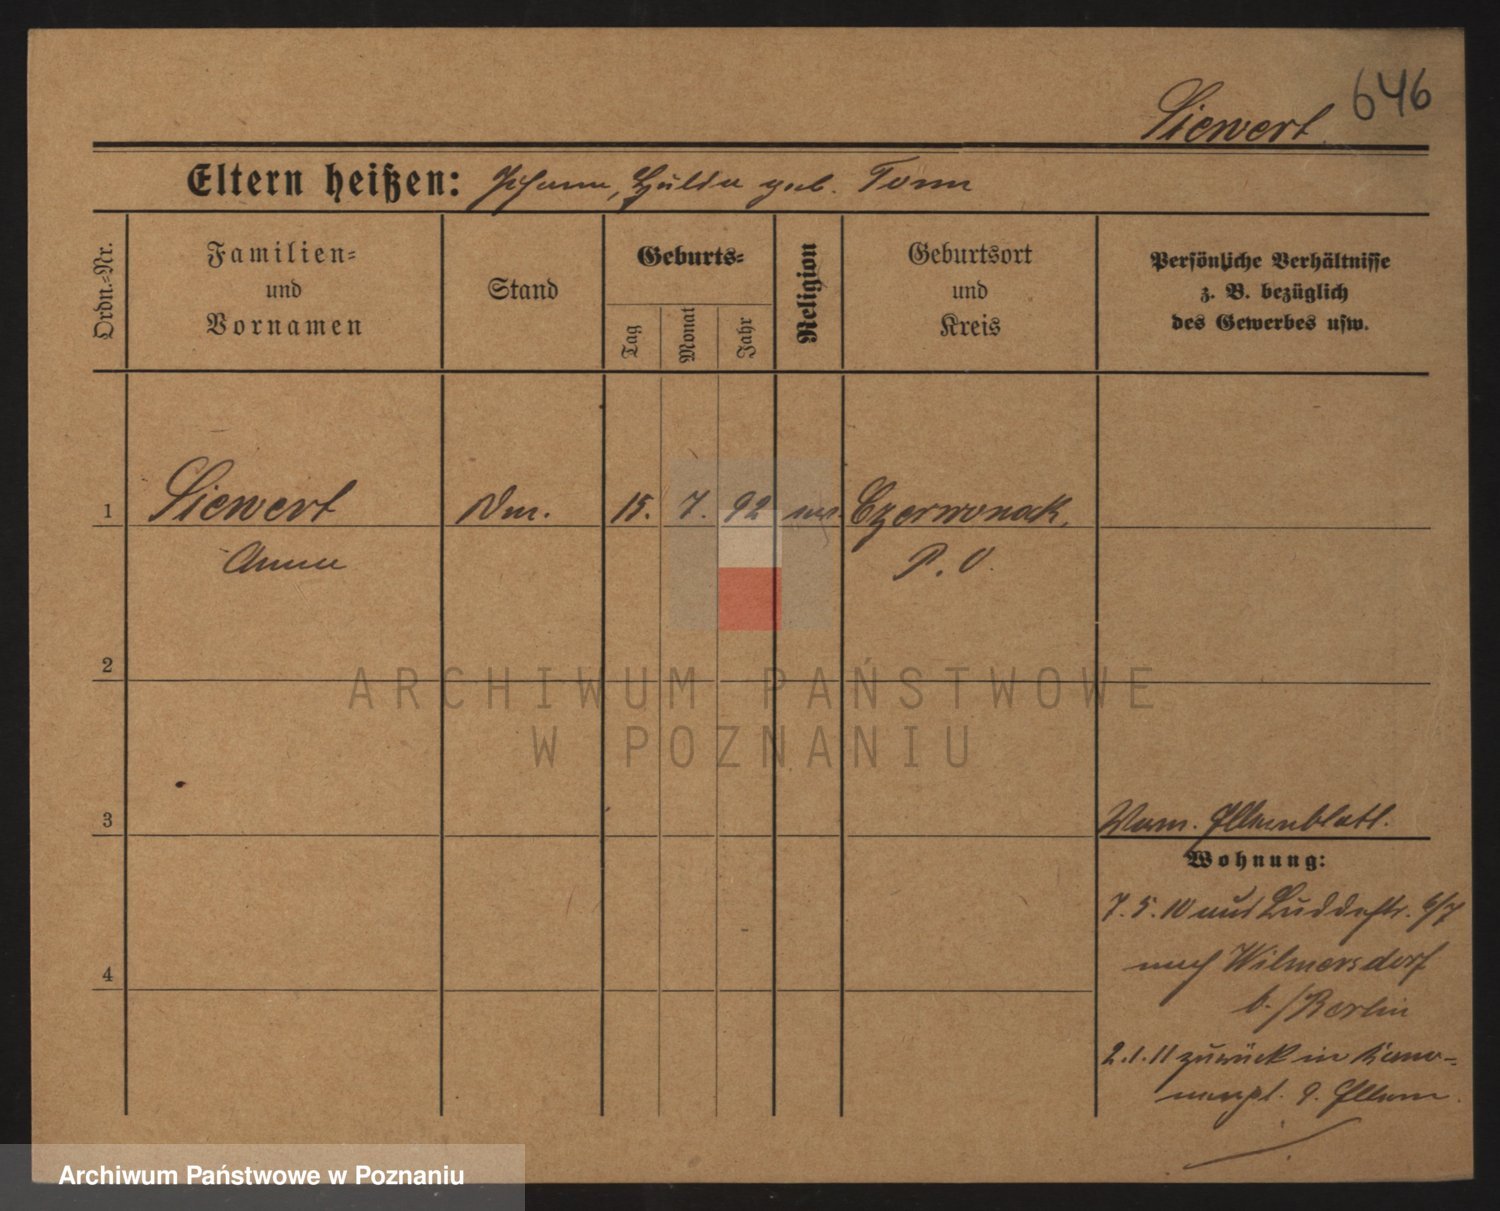 646
Siewert.
Eltern heißen: Johann, Hulda geb. Tonn
Ordn.-Nr.
Familien- und Vornamen
Stand
Geburts-
Tag
Monat
Jahr
Religion
Geburtsort und Kreis
Persönliche Verhältnisse z. B. bezüglich des Gewerbes usw.
1 Siewert 15. 7. 92 Czerwonak,
Anna P. O.
2
3
4
Wohnung:
7. 5. 10 aus 6/7
nach Wilmersdorf
b./Berlin
2. 1. 11 zurück in
9. Eltern.
ARCHIWUM PAŃSTWOWE
W POZNANIU
Archiwum Państwowe w Poznaniu